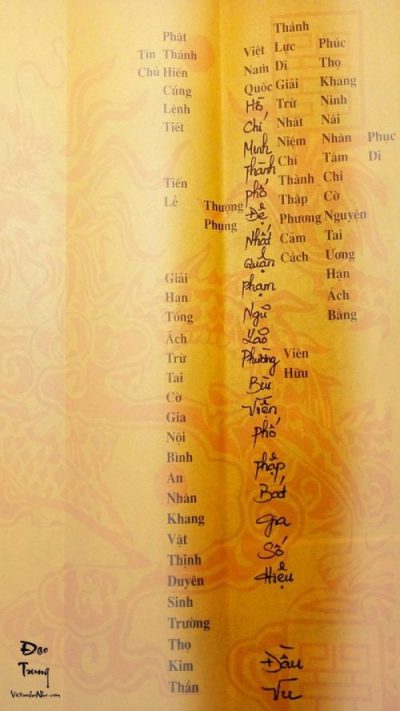 Phục Dĩ
Phúc Thọ Khang Ninh Nãi Nhân Tâm Chi Cờ Nguyện Tai Ương Hạn Ách Bằng
Thánh Lực Dĩ Giải Trừ Nhất Niệm Chí Thành Thập Phương Cảm Cách
Viên Hữu
Việt Nam Quốc Hồ Chí Minh Thành phố Đệ Nhất Quận phạm Ngũ Lão Phường Bùi Viện phố pháp Bát gia Số Hiệu
Đầu Vu
Thượng Phụng
Phật Thánh Hiến Cúng Lễnh Tiết
Tiến Lễ
Giải Hạn Tống Ách Trừ Tai Cờ Gia Nội Bình An Nhân Khang Vật Thịnh Duyên Sinh Trường Thọ Kim Thần
Tín Chủ
Đạo
Trung